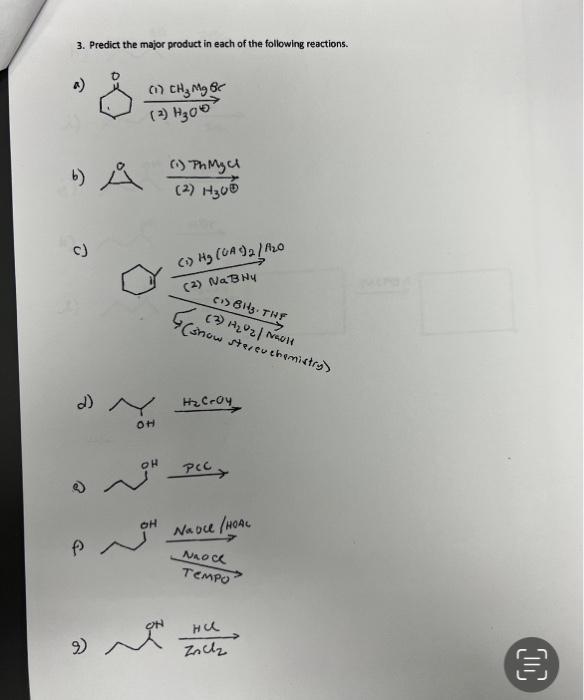 3. Predict the major product in each of the following reactions.
a)
O
(1) CH3MgBr
(2) H3O⊕
b)
O
(1) PhMgCl
(2) H3O⊕
c)
(1) Hg(OAc)2/H2O
(2) NaBH4
(1) BH3·THF
(2) H2O2/NaOH
(show stereochemistry)
d)
OH
H2CrO4
e)
OH
PCC
f)
OH
NaOCl/HOAc
NaOCl
TEMPO
g)
OH
HCl
ZnCl2